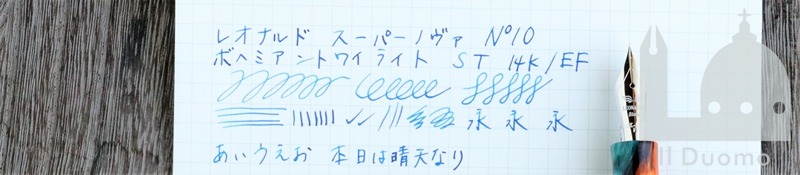 レオナルド スーパーノヴァ Nº10
ボヘミアントワイライト ST 14K/EF
永 永 永
あいうえお 本日は晴天なり
Il Duomo